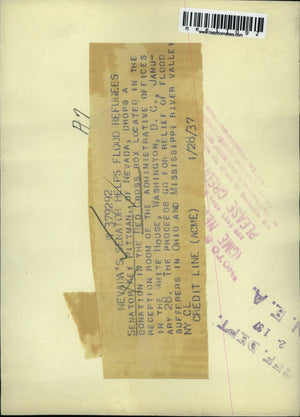 A7
# 379292
NEVADA'S SENATOR HELPS FLOOD REFUGEES
SENATOR KEY PITTMAN, OF NEVADA, DROPS A
DONATION IN THE RED CROSS BOX LOCATED IN THE
RECEPTION ROOM OF THE ADMINISTRATIVE OFFICES
IN THE WHITE HOUSE, WASHINGTON, D. C., JANU-
ARY 28. THE PROCEEDS GO FOR RELIEF OF FLOOD
SUFFERERS IN OHIO AND MISSISSIPPI RIVER VALLEY
NY CL
CREDIT LINE (ACME) 1/28/37
PLEASE CREDIT
ACME
N. E. A.
REF. DEPT.